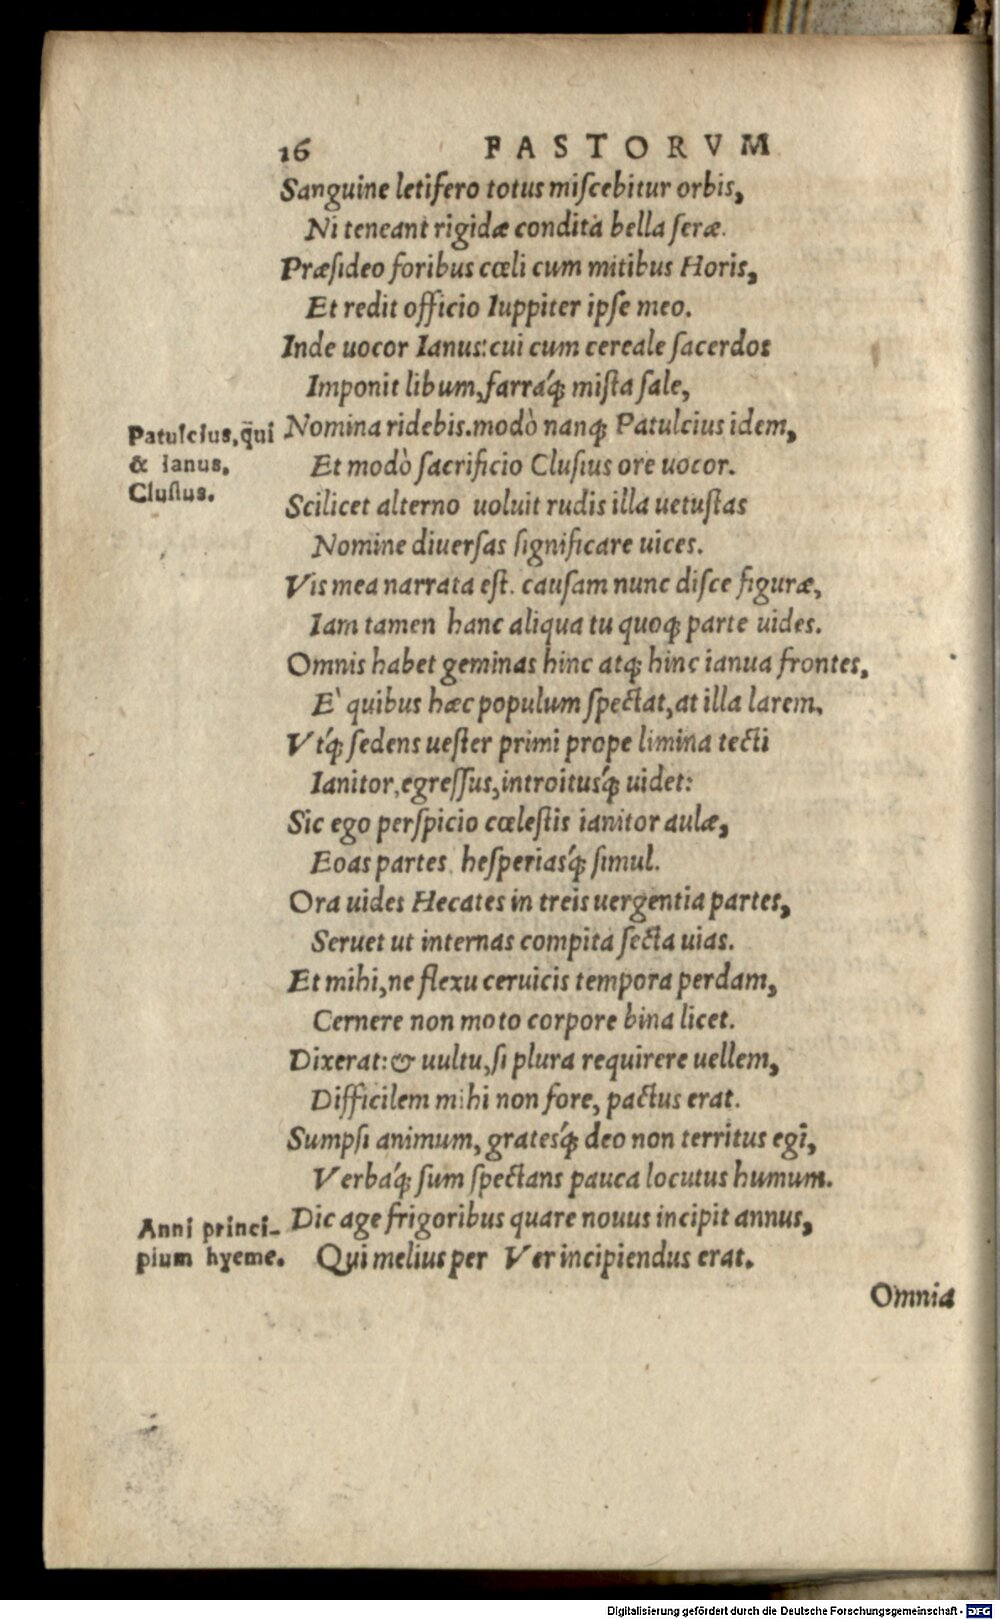 16 FASTORVM
Sanguine letifero totus miſcebitur orbis,
Ni teneant rigidæ condita bella ſeræ.
Præſideo foribus cœli cum mitibus Horis,
Et redit officio Iuppiter ipſe meo.
Inde uocor Ianus: cui cum cereale ſacerdos
Imponit libum, farráq; miſta ſale,
Nomina ridebis. modò nanq; Patulcius idem,
Patulcius, q̃ui
& Ianus,
Cluſius.
Et modò ſacrificio Cluſius ore uocor.
Scilicet alterno uoluit rudis illa uetuſtas
Nomine diuerſas ſignificare uices.
Vis mea narrata eſt. cauſam nunc diſce figuræ,
Iam tamen hanc aliqua tu quoq; parte uides.
Omnis habet geminas hinc atq; hinc ianua frontes,
E` quibus hæc populum ſpectat, at illa larem.
Vtq́; ſedens ueſter primi prope limina tecti
Ianitor, egreſſus, introitusq́; uidet:
Sic ego perſpicio cœleſtis ianitor aulæ,
Eoas partes heſperiasq́; ſimul.
Ora uides Hecates in treis uergentia partes,
Seruet ut internas compita ſecta uias.
Et mihi, ne flexu ceruicis tempora perdam,
Cernere non moto corpore bina licet.
Dixerat: & uultu, ſi plura requirere uellem,
Difficilem mihi non fore, pactus erat.
Sumpſi animum, gratesq́; deo non territus egi,
Verbáq; ſum ſpectans pauca locutus humum.
Dic age frigoribus quare nouus incipit annus,
Anni princi-
pium hyeme.
Qui melius per Ver incipiendus erat.
Omnia
Digitalisierung gefördert durch die Deutsche Forschungsgemeinschaft - DFG